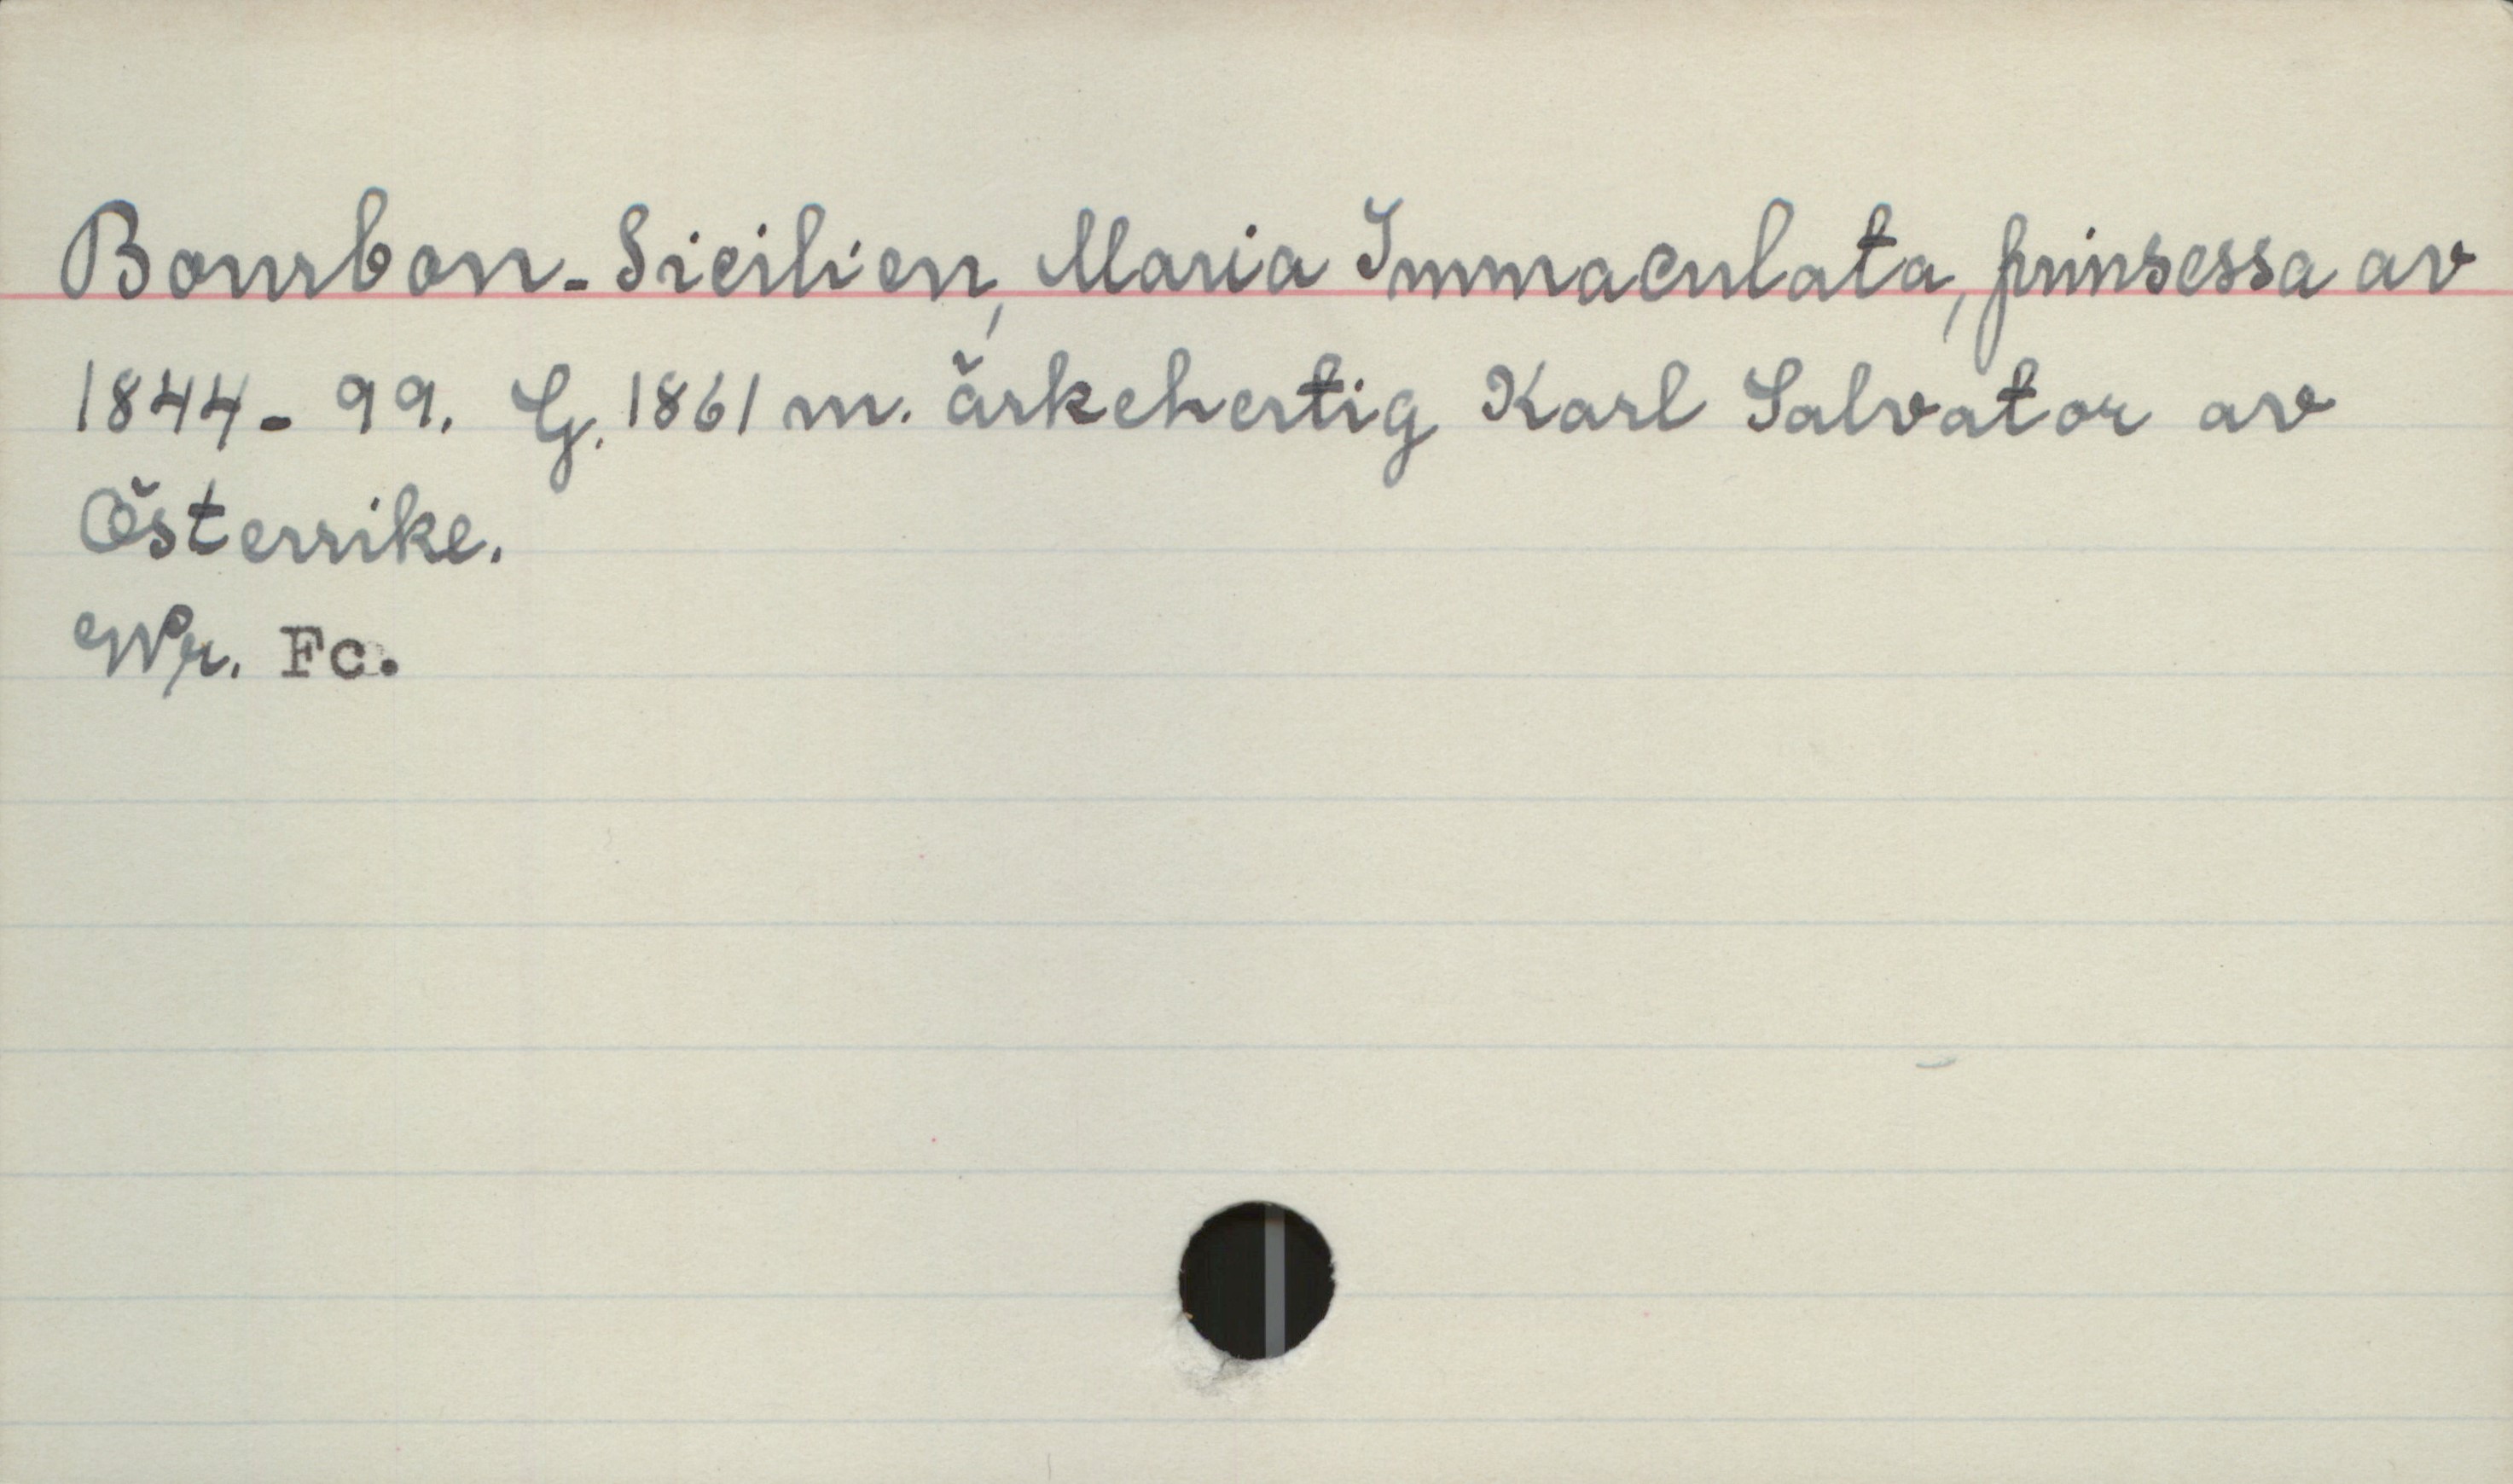 Bourbon-Sicilien, Maria Immaculata, prinsessa av
1844-99. G. 1861 m. ärkehertig Karl Salvator av
Österrike.
Wpr. Fc.